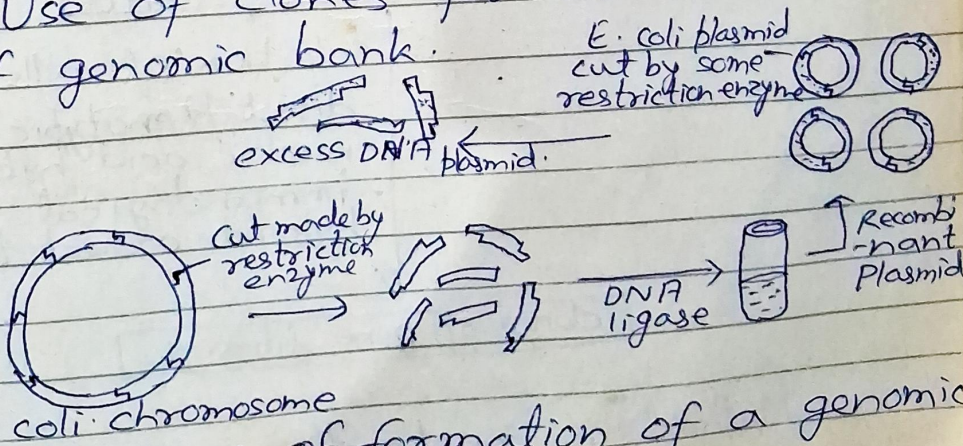 Use of clones
genomic bank.
E. coli plasmid
cut by some
restriction enzyme
excess DNA plasmid.
Cut made by
restriction
enzyme
DNA
ligase
Recombi
-nant
Plasmid
coli chromosome
of formation of a genomic